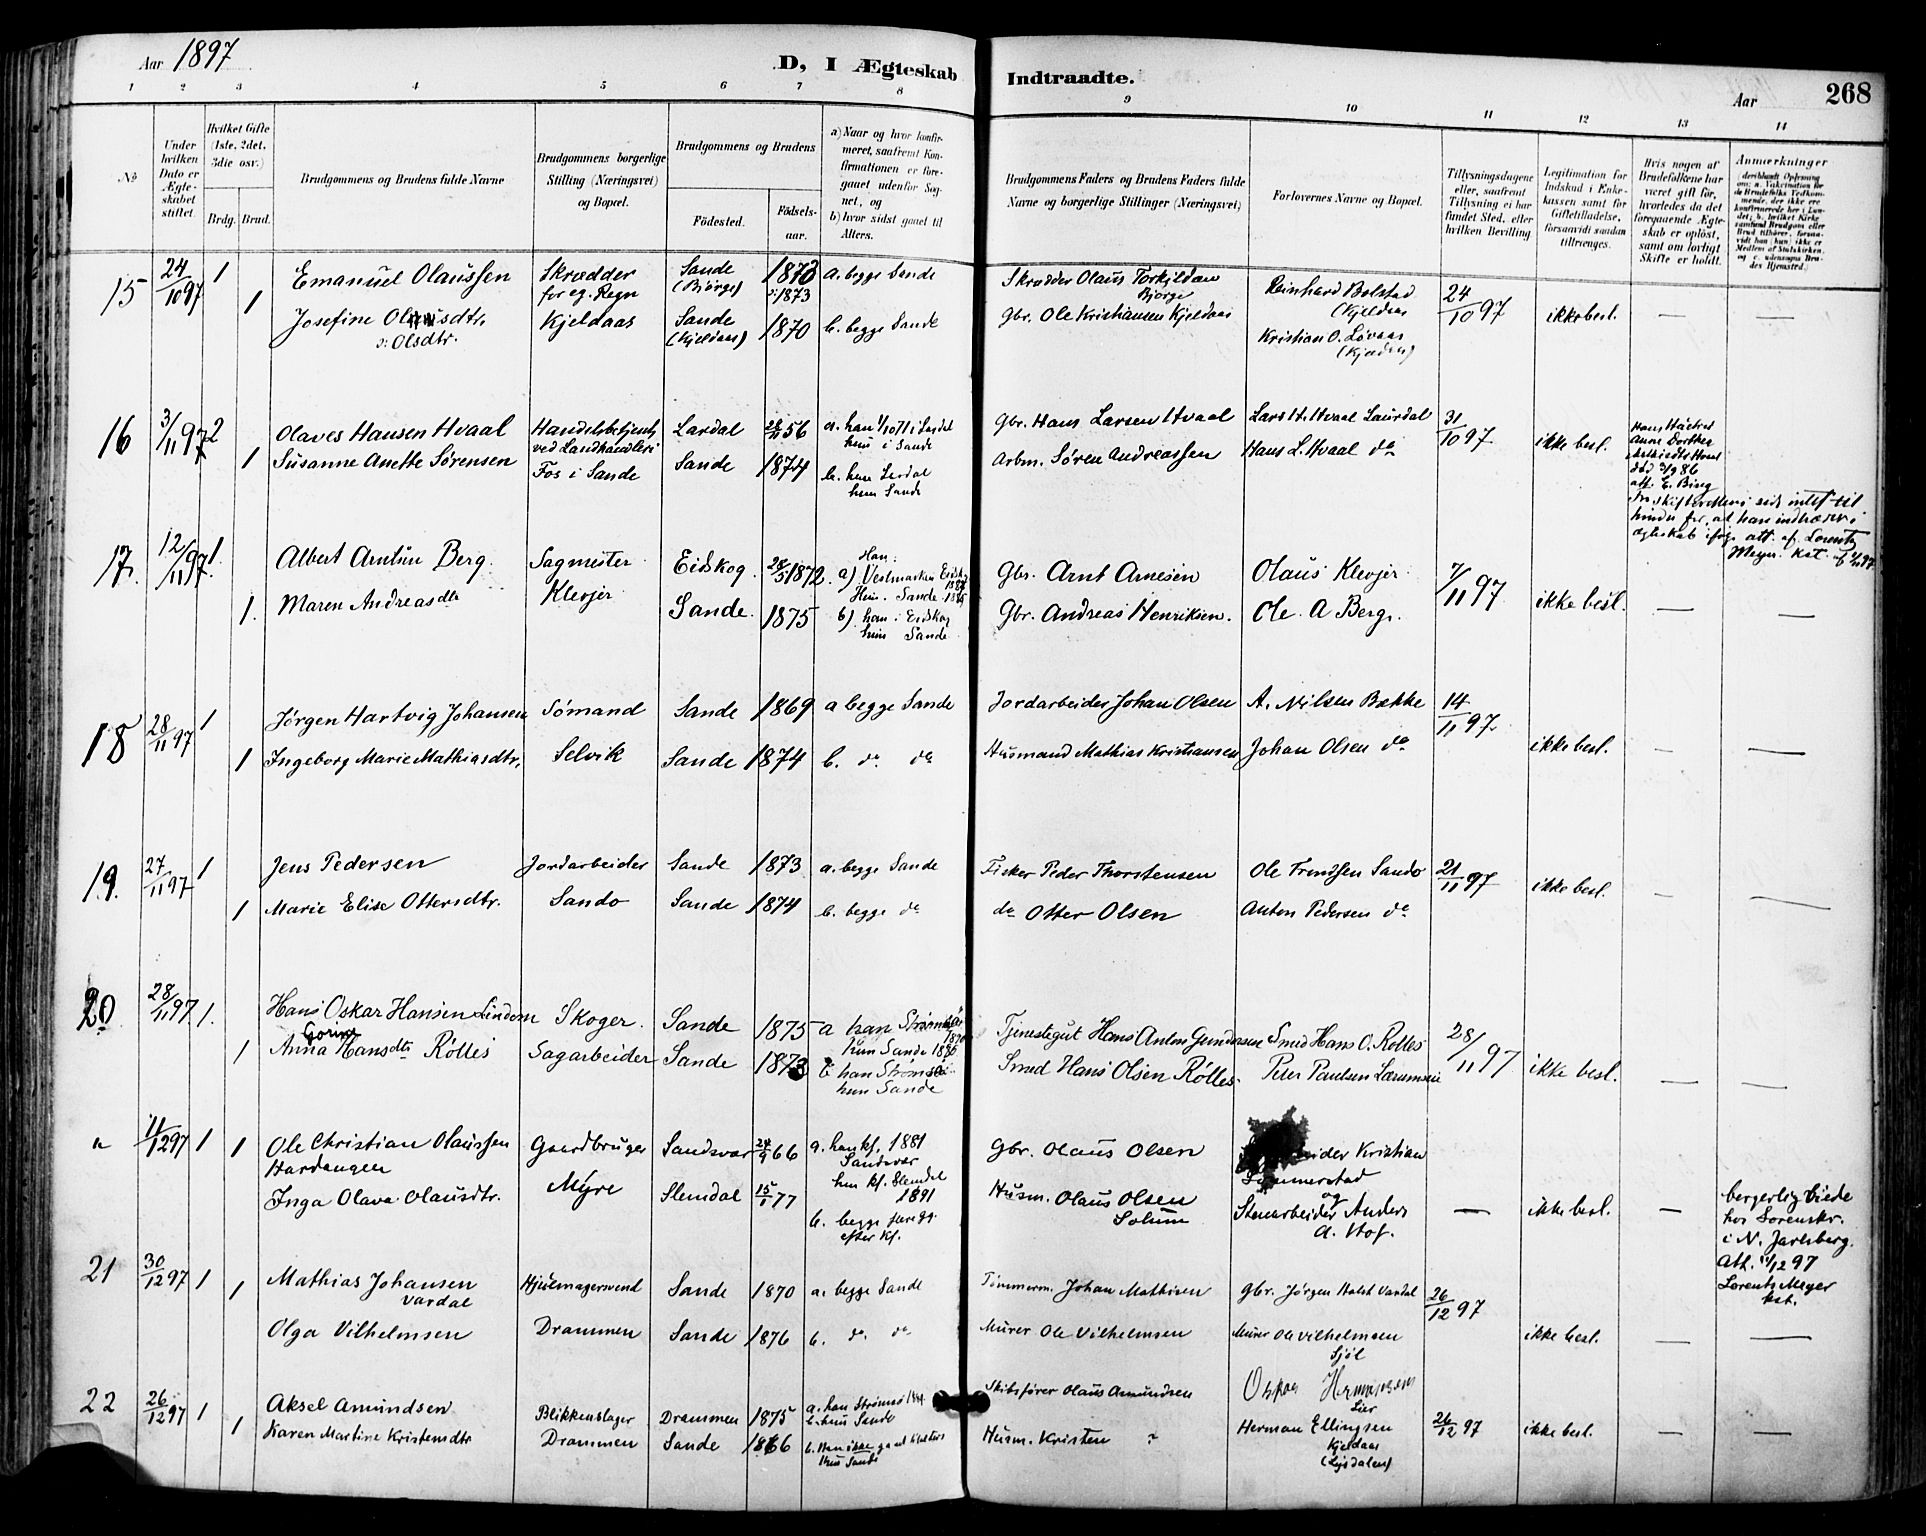 Aar 1897
D, I Ægteskab Indtraadte.
Aar 268
1 2 3 4 5 6 7 8 9 10 11 12 13 14
No
Under hvilken Dato er Ægteskabet stiftet.
Hvilket Gifte (1ste, 2det, 3die osv.)
Brdg. Brud.
Brudgommens og Brudens fulde Navne
Brudgommens borgerlige Stilling (Næringsvei) og Bopæl.
Brudgommens og Brudens
Födested.
Födsels-aar.
a) Naar og hvor konfirmeret, saafremt Konfirmationen er foregaaet udenfor Sognet, og
b) hvor sidst gaaet til Alters.
Brudgommens Faders og Brudens Faders fulde Navne og borgerlige Stillinger (Næringsvei)
Forlovernes Navne og Bopæl.
Tillysningsdagene eller, saafremt Tillysning ei har fundet Sted, efter hvilken Bevilling
Legitimation for Indskud i Enkekassen samt for Giftetilladelse, forsaavidt saadan tiltrænges.
Hvis nogen af Brudefolkene har været gift för, hvorledes da det foregaaende Ægteskab er oplöst, samt om lovligt Skifte er holdt.
Anmærkninger
15 24/10 97 1 Emanuel Olaussen Skrædder for eg. Regn Sande (Bjørge) 1873 a. begge Sande Skrædder Olaus Torkjildsen Bjørge Reinhard Bolstad (Kjeldaas 24/10 97 ikke besl. — —
1 Josefine Olausdtr. ɔ: Olsdtr. Kjeldaas Sande (Kjeldaas) 1870 b. begge Sande Gbr. Ole Kristiansen Kjeldaas Kristian O. Løvaas
16 3/11 97 2 Olaves Hansen Hvaal Handelsbetjent ved Landhandleri Lardal 28/11 56 a. han 1/10 71 i Lardal hun i Sande Gbr. Hans Larsen Hvaal Lars H. Hvaal Laurdal 31/10 97 ikke besl.
1 Susanne Anette Sørensen Fos i Sande Sande 1874 b. han Lardal hun Sande Arbm. Søren Andreassen Hans L. Hvaal do
Hans Hustru
Anne Dorthea
att. E. Bing
17. 12/11 97. 1. Albert Arntsen Berg. Sagmester Eidskog 28/5 1872. Han: a) Vestmarken Eidskog Hun. Sande Gbr. Arnt Arnesen Olaus Klevjer 7/11 97 ikke besl. — —
1. Maren Andreasdtr Klevjer Sande. 1875 b) han i Eidskog hun Sande Gbr. Andreas Henriksen. Ole A Berg.
18 28/11 97 1 Jørgen Hartvig Johansen Sømand Sande 1869 a begge Sande Jordarbeider Johan Olsen A. Nilsen Bække 14/11 97. ikke besl. — —
1 Ingeborg Marie Mathiasdtr. Selvik Sande 1874 b. do do Husmand Mathias Kristiansen Johan Olsen do
19. 27/11 97 1 Jens Pedersen Jordarbeider Sande 1873 a. begge Sande Fisker Peder Thorstensen Ole Trondsen Sando 21/11 97 ikke besl. — —
1 Marie Elise Ottersdtr. Sando Sande 1874 b. begge do do Otter Olsen Anton Pedersen do
20 28/11 97. 1. Hans Oskar Hansen Lindem Skoger Sande 1875 a han Strømsø hun Sande Tjenestegut Hans Anton Gundersen Smed Hans O. Rølles 28/11 97 ikke besl. — —
1 Anna Hansdtr Rølles Sagarbeider Sande 1873 b han Strømsø hun Sande Smed Hans Olsen Rølles. Peter Paulsen
" 11/12 97 1 1 Ole Christian Olaussen Hardangen Gaardbruger Sandsvær 24/9 66 a. han kf. 1881 Sandsvær hun kf. Slemdal 1891 Gbr. Olaus Olsen Kristian
Inga Olava Olausdtr. Myre Slemdal 15/1 77 b. begge efter kf. Husm. Olaus Olsen Solum og Stenarbeider Anders A. Hof. — ikke besl. —
borgerlig viede
hos Sorenskr.
i N. Jarlsberg.
Att. 11/12 97
Lorentz Meyer
kst.
21 30/12 97 1 1 Mathias Johansen Vardal Hjulmagersvend Sande 1870 a. begge Sande Tømmerm. Johan Mathisen Gbr. Jørgen Holst Vardal 26/12 97
Olga Vilhelmsen Drammen Sande 1876 b. do do Murer Ole Vilhelmsen Murer Ole Vilhelmsen Sjöl ikke besl. — —
22 26/12 97 1 Aksel Amundsen Blikkenslager Drammen 1875 a. han Strømsø b. hun Sande Skibsfører Olaus Amundsen Oskar Hermansen Lier
1 Karen Martine Kristensdtr Drammen Sande 1866 b. Han ikke gaaet til Alters Hun Sande Husm. Kristen ? Herman Ellingsen Kjeldaas (Lysdalen) 26/12 97 ikke besl. — —